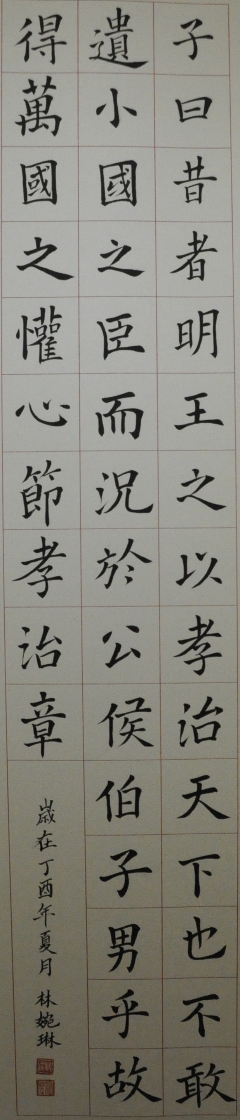 子曰昔者明王之以孝治天下也不敢
遺小國之臣而況於公侯伯子男乎故
得萬國之懽心節孝治章
歲在丁酉年夏月 林婉琳